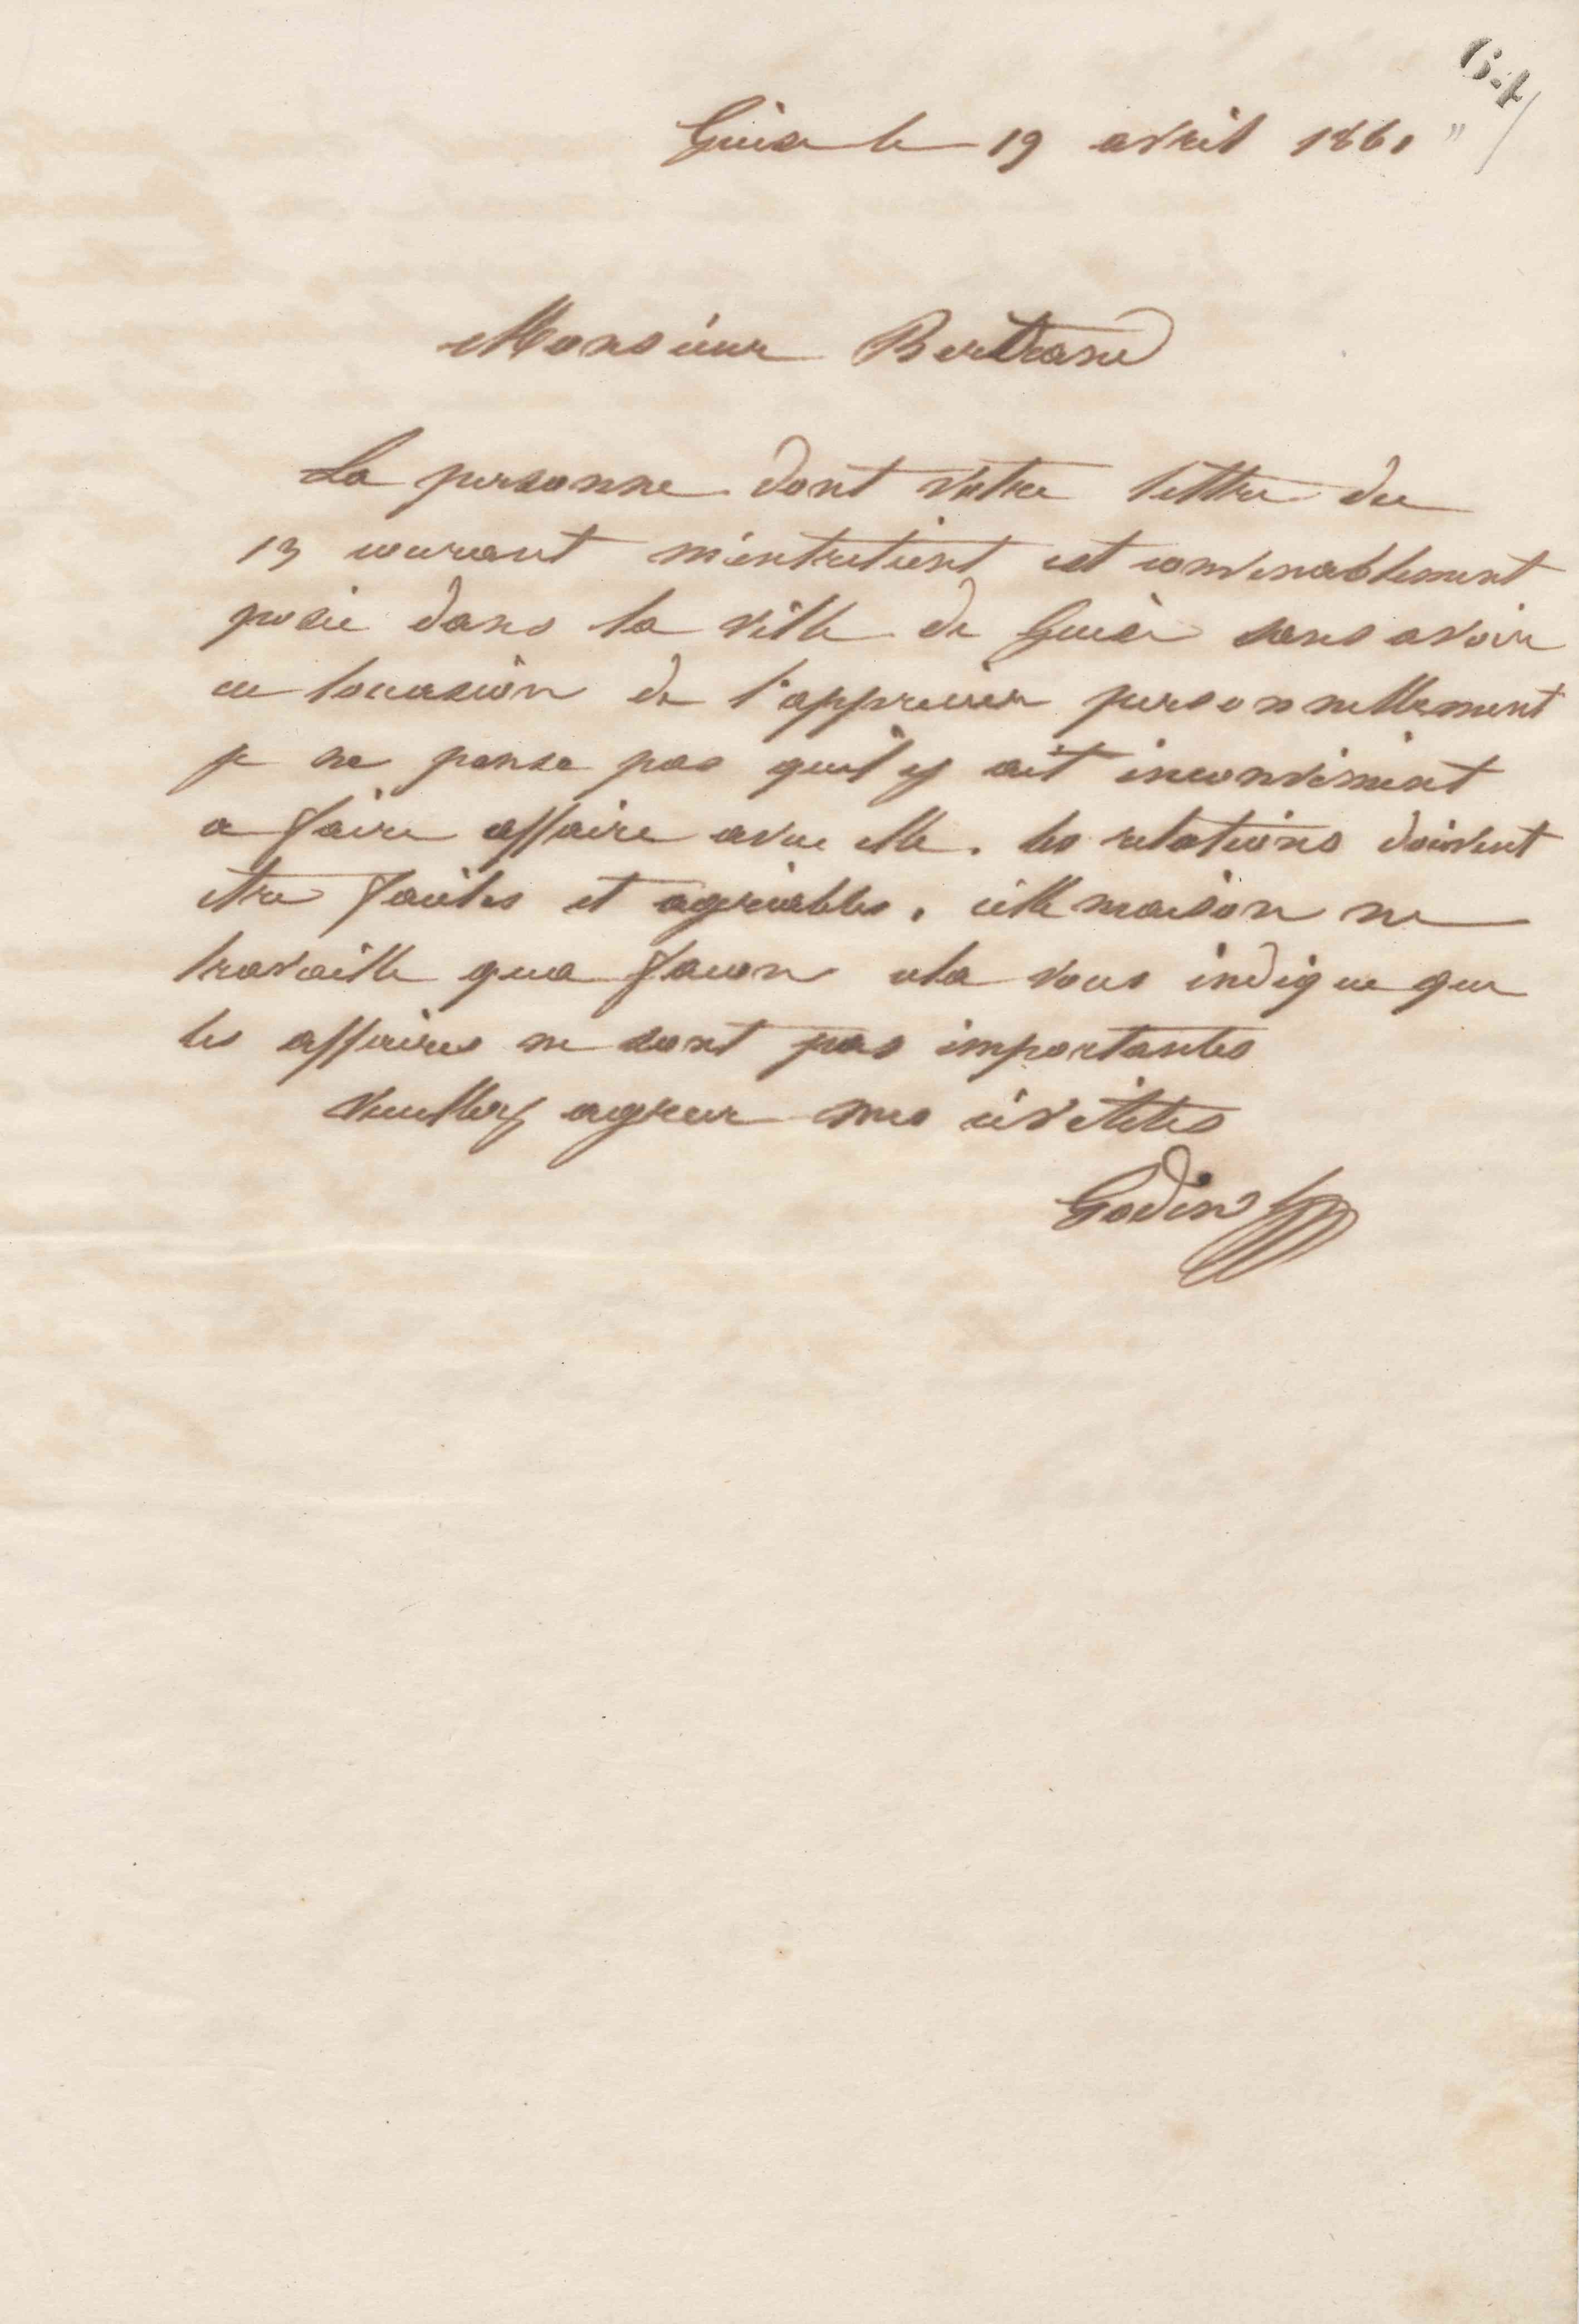 64
Guise le 19 avril 1861
Monsieur Bertrand
La personne dont votre lettre du
13 courant m'entretient est convenablement
posée dans la ville de Guise sans avoir
eu loccasion de l'apprecier personnellement
je ne pense pas quil y ait inconvénient
a faire affaire avec elle. les relations doivent
etre faciles et agréables. cette maison ne
travaille qua facon cela vous indique que
les affaires ne sont pas importantes
veuillez agreer mes civilites
Godin